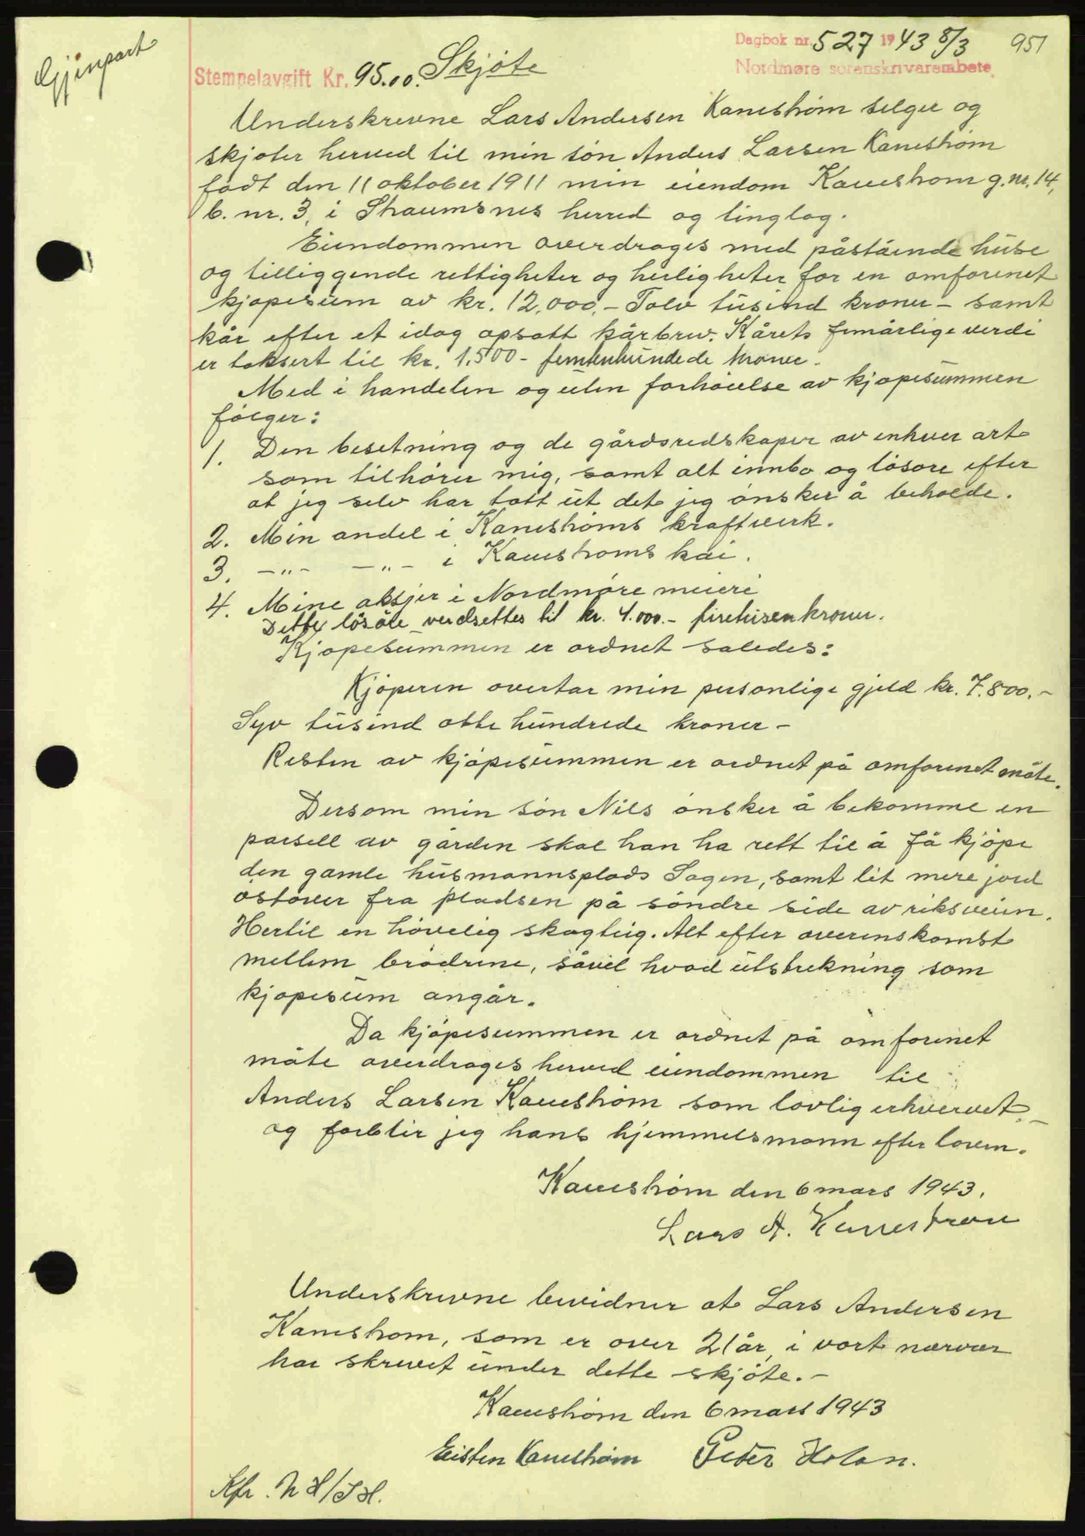 Gjenpart
Dagbok nr. 527 1943 8/3 951
Nordmøre sorenskriverembete
Stempelavgift Kr. 95.00. Skjöte
Underskrevne Lars Andersen Kanestrøm selger og
skjøter herved til min sön Anders Larsen Kanestrøm
født den 11 oktober 1911 min eiendom Kanestrøm g.nr. 14,
b. nr. 3, i Straumsnes herred og tinglag.
Eiendommen overdrages med påstående huse
og tilliggende rettigheter og herligheter for en omforenet
kjøpesum av kr. 12.000,- Tolv tusind kroner - samt
kår efter et idag opsatt kårbrev. Kårets femårlige verdi
er taksert til kr. 1.500- femtenhundede kroner.
Med i handelen og uten forhöielse av kjøpesummen
fölger:
1. Den besetning og de gårdsredskaper av enhver art
som tilhörer mig, samt alt innbo og lösöre efter
at jeg selv har tatt ut det jeg önsker å beholde.
2. Min andel i Kanestrøms kraftverk.
3. -"- -"- i Kanestrøms kai.
4. Mine aksjer i Nordmøre meieri
Dette lösöre verdsettes til kr. 4.000.- firetusen kroner.
Kjøpesummen er ordnet således:
Kjöperen overtar min personlige gjeld kr. 7.800.-
Syv tusind otte hundrede kroner -
Resten av kjöpesummen er ordnet på omforenet måte.
Dersom min sön Nils önsker å bekomme en
parsell av gården skal han ha rett til å få kjöpe
den gamle husmannsplads Sagen, samt lit mere jord
östover fra pladsen på söndre side av riksveien.
Hertil en hövelig skogteig. Alt efter overenskomst
mellem brödrene, såvel hvad utstrekning som
kjøpesum angår.
Da kjöpesummen er ordnet på omforenet
måte overdrages herved eiendommen til
Anders Larsen Kanestrøm som lovlig erhvervet -
og forblir jeg hans hjemmelsmann efter loven.
Kanestrøm den 6 mars 1943.
Lars A. Kanestrøm
Underskrevne bevidner at Lars Andersen
Kanestrøm, som er over 21 år, i vort nærvær
har skrevet under dette skjöte.-
Kanestrøm den 6 mars 1943
Eisten Kanestrøm Peder Holan.
Kfr. N H/S H.